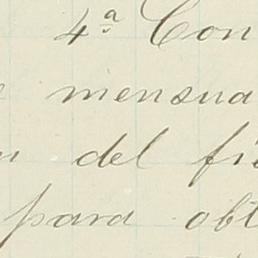 4ª Con
mensua
del fi
para obt